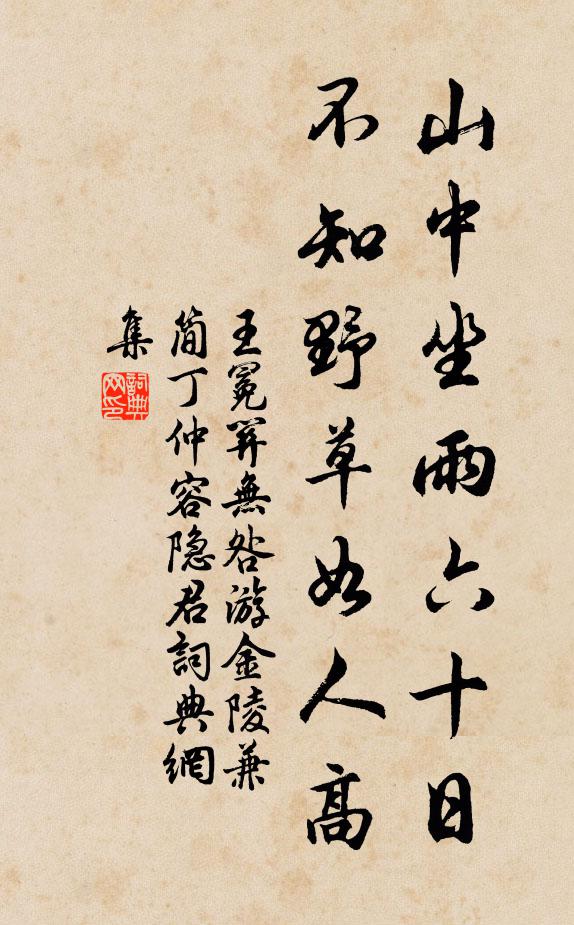 山中坐雨六十日
不知野草如人高
王冕無咎游金陵兼
简丁仲容隐君詞典網
集
詞典
网印